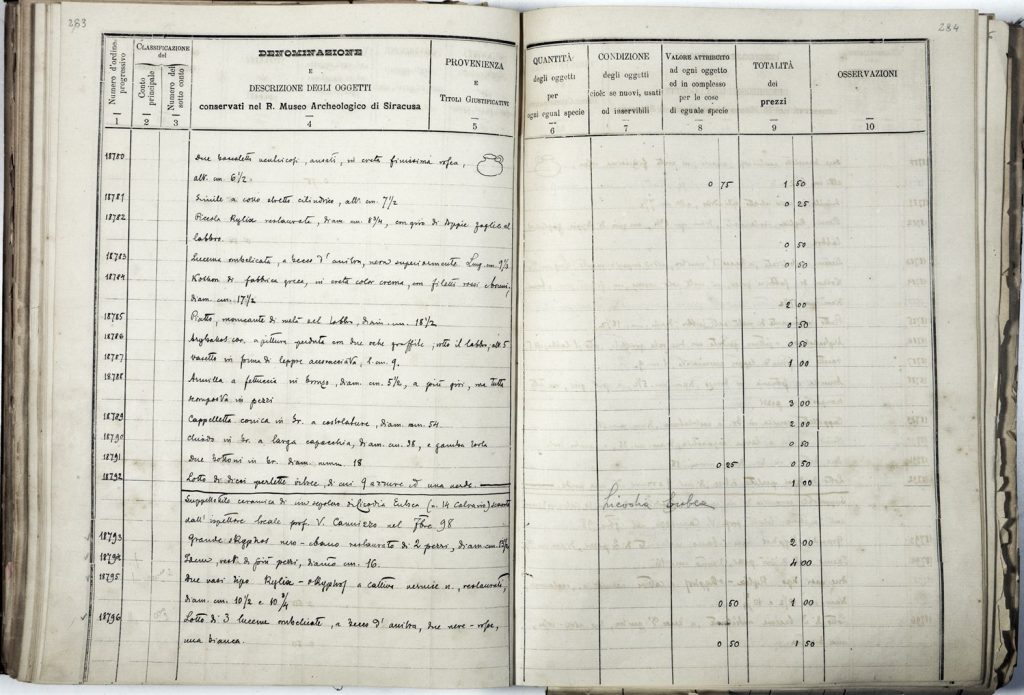 283
Numero d'ordine progressivo
CLASSIFICAZIONE del
Conto principale
Numero del sotto conto
DENOMINAZIONE
E
DESCRIZIONE DEGLI OGGETTI
conservati nel R. Museo Archeologico di Siracusa
PROVENIENZA
E
TITOLI GIUSTIFICATIVI
1 2 3 4 5
18780 Due vasetti ventricosi, ansati, in creta finissima rosea,
alt. cm. 6 1/2
18781 Simile a collo stretto cilindrico, alt. cm. 7 1/2
18782 Piccola Kylix restaurata, diam. cm. 8 3/4, con giro di doppie foglie al
labbro.
18783 Lucerna ombelicata, a becco d'ancora, nera superiormente. Lung. cm. 9 1/2
18784 di fabbrica greca, in creta color crema, con filetti rossi
diam. cm. 17 1/2
18785 Piatto, mancante di metà del labbro, diam. cm. 18 1/2
18786 Arybalos a pittura perduta con due oche graffite, rotto il labbro, alt. 5
18787 vasetto in forma di leppre accovacciata, l. cm. 9.
18788 Armilla a fettuccia in bronzo, diam. cm. 5 1/2, a più giri, ma tutta
scomposta in pezzi
18789 Cappelletto conico in br. a costolature, diam. mm. 54
18790 chiodo in br. a larga capocchia, diam. cm. 38, e gamba torta
18791 Due bottoni in br. diam. mm. 18
18792 Lotto di dieci perlette vitree, di cui 9 azzurre ed una verde.
Suppellettile ceramica di un sepolcro di Licodia Eubea (n. 14 Calvario)
dall'ispettore locale prof. V. Cannizzo nel 7bre 98
18793 Grande skyphos nero-ebano restaurato di 2 pezzi, diam. cm.
18794 Idem, rest. di più pezzi, diam. cm. 16.
18795 Due vasi tipo Kylix-skyphos a cattiva vernice n., restaurati,
diam. cm. 10 1/2 e 10 3/4
18796 Lotto di 3 lucerne ombelicate, a becco d'ancora, due nere-rosse,
una bianca.
284
QUANTITÀ
degli oggetti
per
ogni egual specie
CONDIZIONE
degli oggetti
cioè: se nuovi, usati
od inservibili
VALORE ATTRIBUITO
ad ogni oggetto
ed in complesso
per le cose
di eguale specie
TOTALITÀ
dei
prezzi
OSSERVAZIONI
6 7 8 9 10
0 75 1 50
0 25
0 50
0 50
2 00
0 50
0 50
1 00
3 00
2 00
0 50
0 25 0 50
1 00
Licodia Eubea
2 00
4 00
0 50 1 00
0 50 1 50